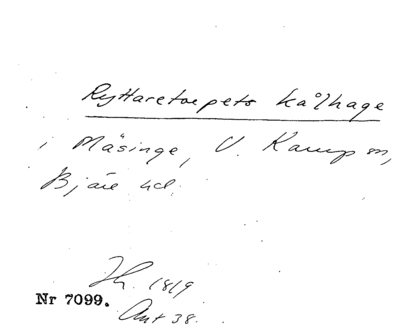 Ryttaretorpets kålhage
i Mäsinge, V. Karup sn,
Bjäre hd.
Th. 1819
Nr 7099.
Ant 38.